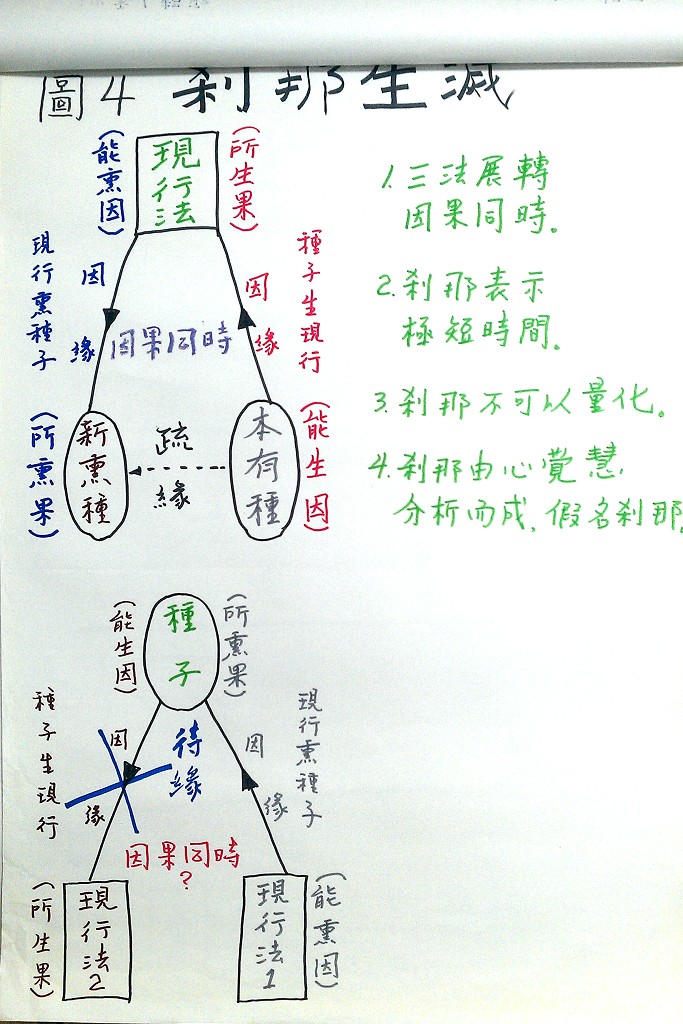 圖4 刹那生滅
(能熏因)
現行法
(所生果)
現行熏種子
因緣
因果同時
因緣
種子生現行
(所熏果)
新熏種
疏緣
本有種
(能生因)
1.三法展轉
因果同時.
2.刹那表示
極短時間.
3.刹那不可以量化.
4.刹那由心覺慧,
分析而成,假名刹那.
(能生因)
種子
(所熏果)
種子生現行
因緣
待緣
因果同時
?
因緣
現行熏種子
(所生果)
現行法2
現行法1
(能熏因)